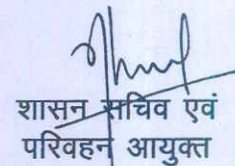 शासन सचिव एवं
परिवहन आयुक्त